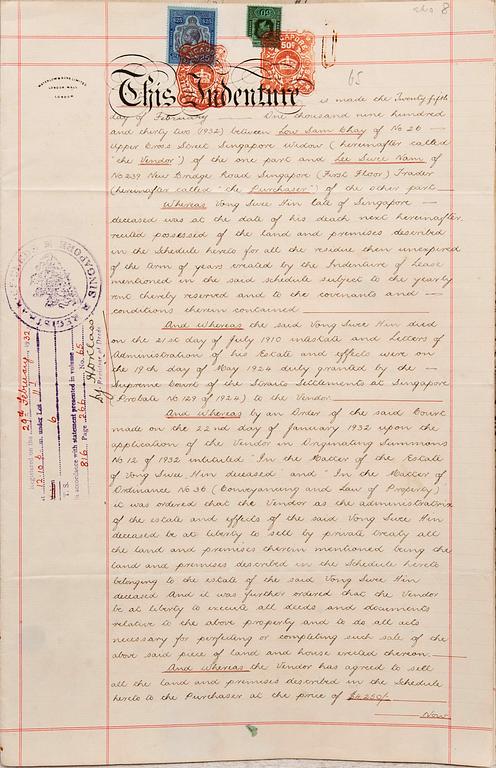 WATERLOW & SONS LIMITED
LONDON WALL
LONDON
65
8
$25
SINGAPORE
50¢
This Indenture is made the Twenty fifth
day of February One thousand nine hundred
and thirty two (1932) between Low Sam Chay of No 26
Upper Cross Street Singapore Widow (hereinafter called
"the Vendor") of the one part and Lee Swee Nam of
No 239 New Bridge Road Singapore (First Floor) Trader
(hereinafter called "the Purchaser") of the other part
Whereas Vong Swee Hin late of Singapore
deceased was at the date of his death next hereinafter
recited possessed of the land and premises described
in the Schedule hereto for all the residue then unexpired
of the term of years created by the Indenture of Lease
mentioned in the said schedule subject to the yearly
rent thereby reserved and to the covenants and
conditions therein contained
And Whereas the said Vong Swee Hin died
on the 21st day of July 1910 intestate and Letters of
Administration of his Estate and effects were on
the 19th day of May 1924 duly granted by the
Supreme Court of the Straits Settlements at Singapore
(Probate No 129 of 1924) to the Vendor
And Whereas by an Order of the said Court
made on the 22nd day of January 1932 upon the
application of the Vendor in Originating Summons
No 12 of 1932 intituled "In the Matter of the Estate
of Vong Swee Hin deceased" and "In the Matter of
Ordinance No 36 (Conveyancing and Law of Property)"
it was ordered that the Vendor as the administratrix
of the estate and effects of the said Vong Swee Hin
deceased be at liberty to sell by private treaty all
the land and premises therein mentioned being the
land and premises described in the Schedule hereto
belonging to the estate of the said Vong Swee Hin
deceased And it was further ordered that the Vendor
be at liberty to execute all deeds and documents
relative to the above property and to do all acts
necessary for perfecting or completing such sale of the
above said piece of land and house erected thereon.
And whereas the Vendor has agreed to sell
all the land and premises described in the Schedule
hereto to the Purchaser at the price of $4,250/-
Now
REGISTRAR SINGAPORE
Registered on the 29th February 1932
at 12.10 p.m. under Lot 117
6
T. S.
in accordance with statement presented in volume
816 Page 266 No. 65
Registrar of Deeds